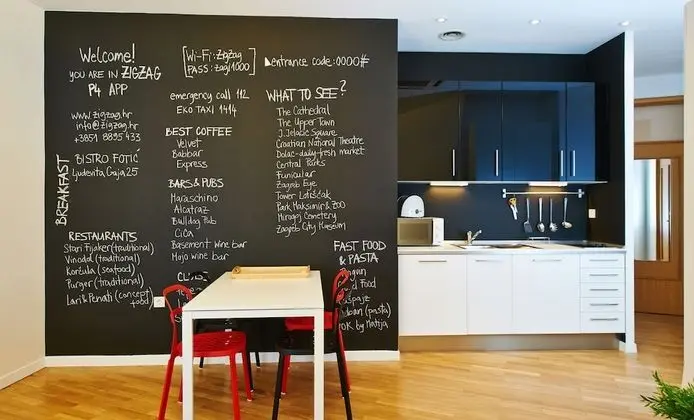 Welcome!
YOU ARE IN ZIGZAG
P4 APP
www.zigzag.hr
info@zigzag.hr
+3851 8895 433
BREAKFAST
BISTRO FOTIĆ
Ljudevita Gaja 25
RESTAURANTS
Stari Fijaker (traditional)
Vinodol (traditional)
Korčula (seafood)
Purger (traditional)
Lari & Penati (concept
food)
[Wi-Fi: zigzag
PASS: zagi1000]
entrance code: 0000#
emergency call 112
EKO TAXI 1414
BEST COFFEE
Velvet
Babbar
Express
BARS & PUBS
Maraschino
Alcatraz
Bulldog Pub
Cica
Basement Wine bar
Mojo wine bar
WHAT TO SEE?
The Cathedral
The Upper Town
J. Jelačić Square
Croatian National Theatre
Dolac-daily fresh market
Central Parks
Funicular
Zagreb Eye
Tower Lotrščak
Park Maksimir & ZOO
Mirogoj Cemetery
Zagreb City Museum
FAST FOOD
& PASTA
Food
(pasta)
by Matija